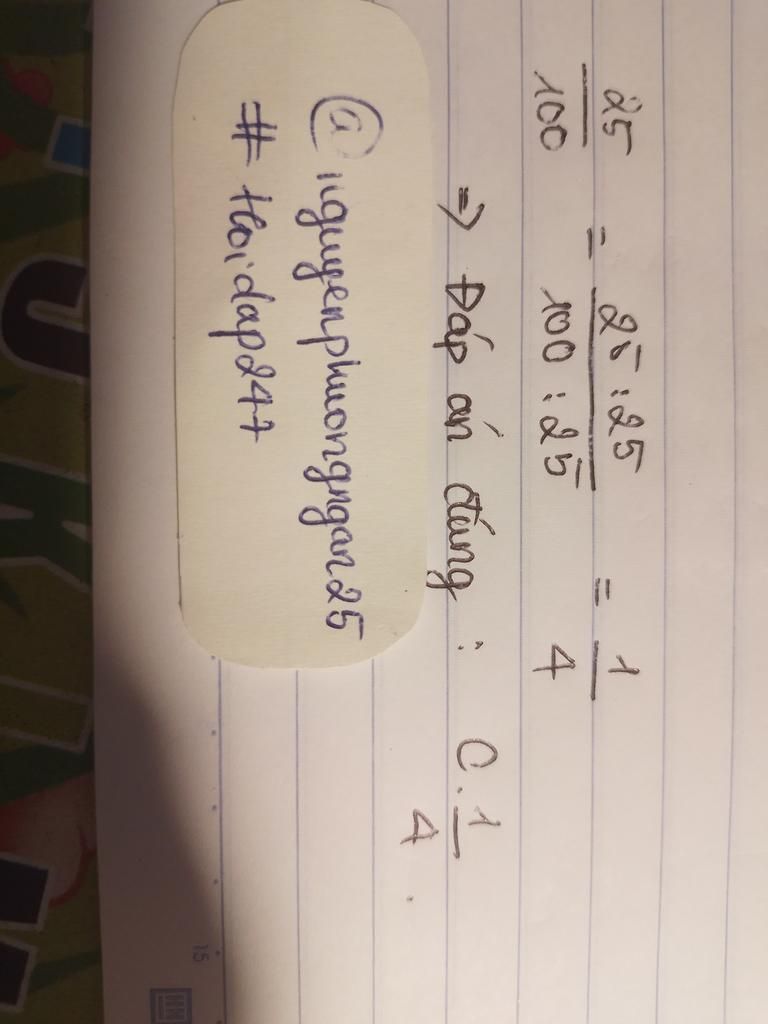 25/100 = 25:25/100:25 = 1/4
=> Đáp án đúng : C. 1/4.
@nguyenphuongngan25
# Hoidap247
15